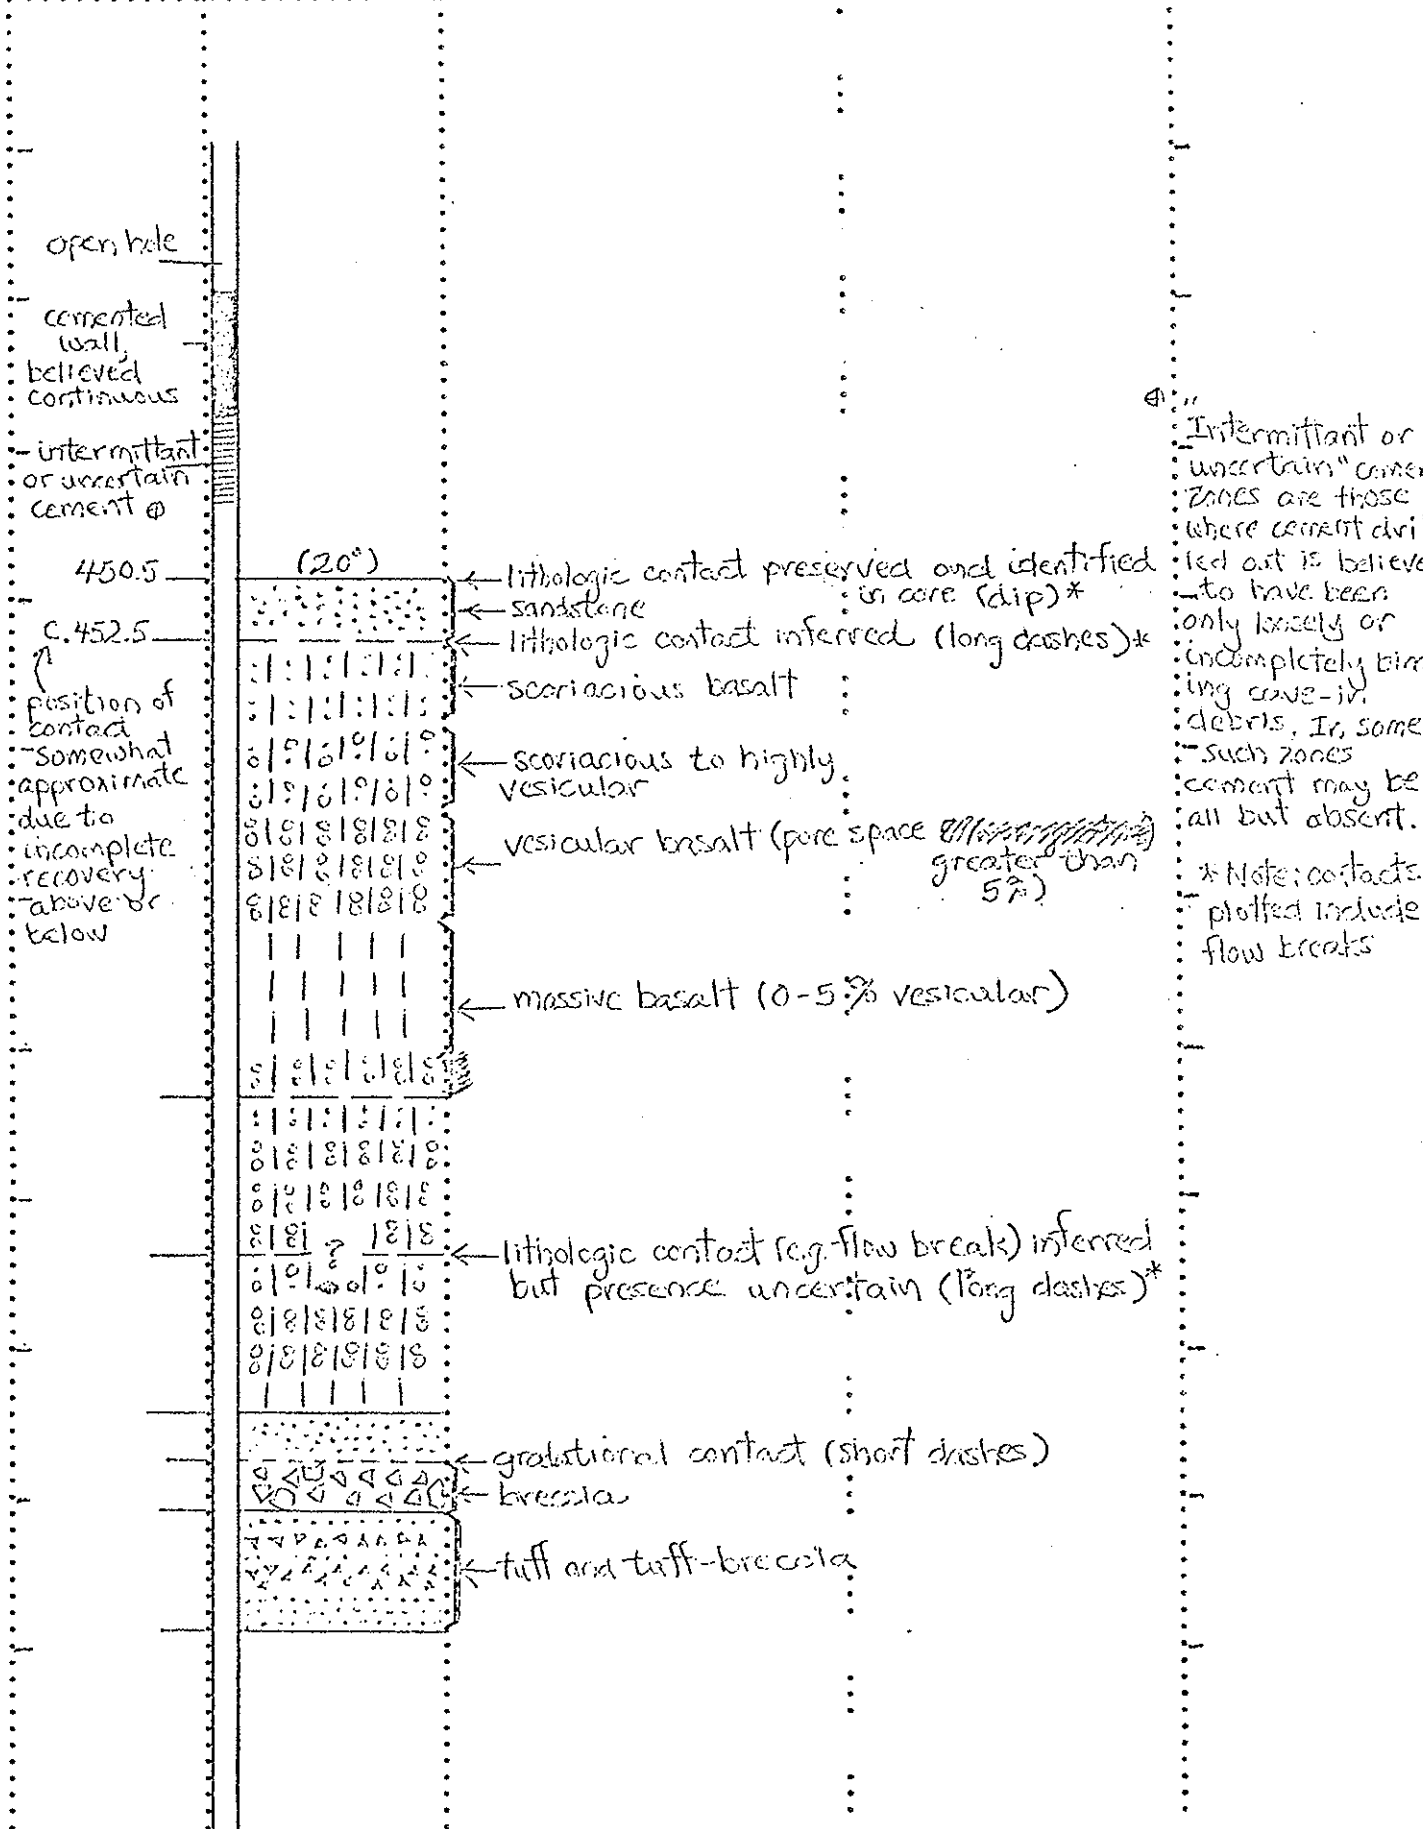 open hole
cemented
wall,
believed
continuous
intermittant
or uncertain
cement ⊕
450.5
C. 452.5
position of
contact
somewhat
approximate
due to
incomplete
recovery
above or
below
(20°)
lithologic contact preserved and identified
in core (dip)*
sandstone
lithologic contact inferred (long dashes)*
scoriacious basalt
scoriacious to highly
vesicular
vesicular basalt (pore space
greater than
5%)
massive basalt (0-5% vesicular)
?
lithologic contact (e.g. flow break) inferred
but presence uncertain (long dashes)*
gradational contact (short dashes)
breccia
tuff and tuff-breccia
⊕ "
Intermittant or
uncertain" cemen
zones are those
where cement dril
led out is believe
to have been
only loosely or
incompletely bin
ing cave-in
debris. In some
such zones
cement may be
all but absent.
* Note: contacts
plotted include
flow breaks